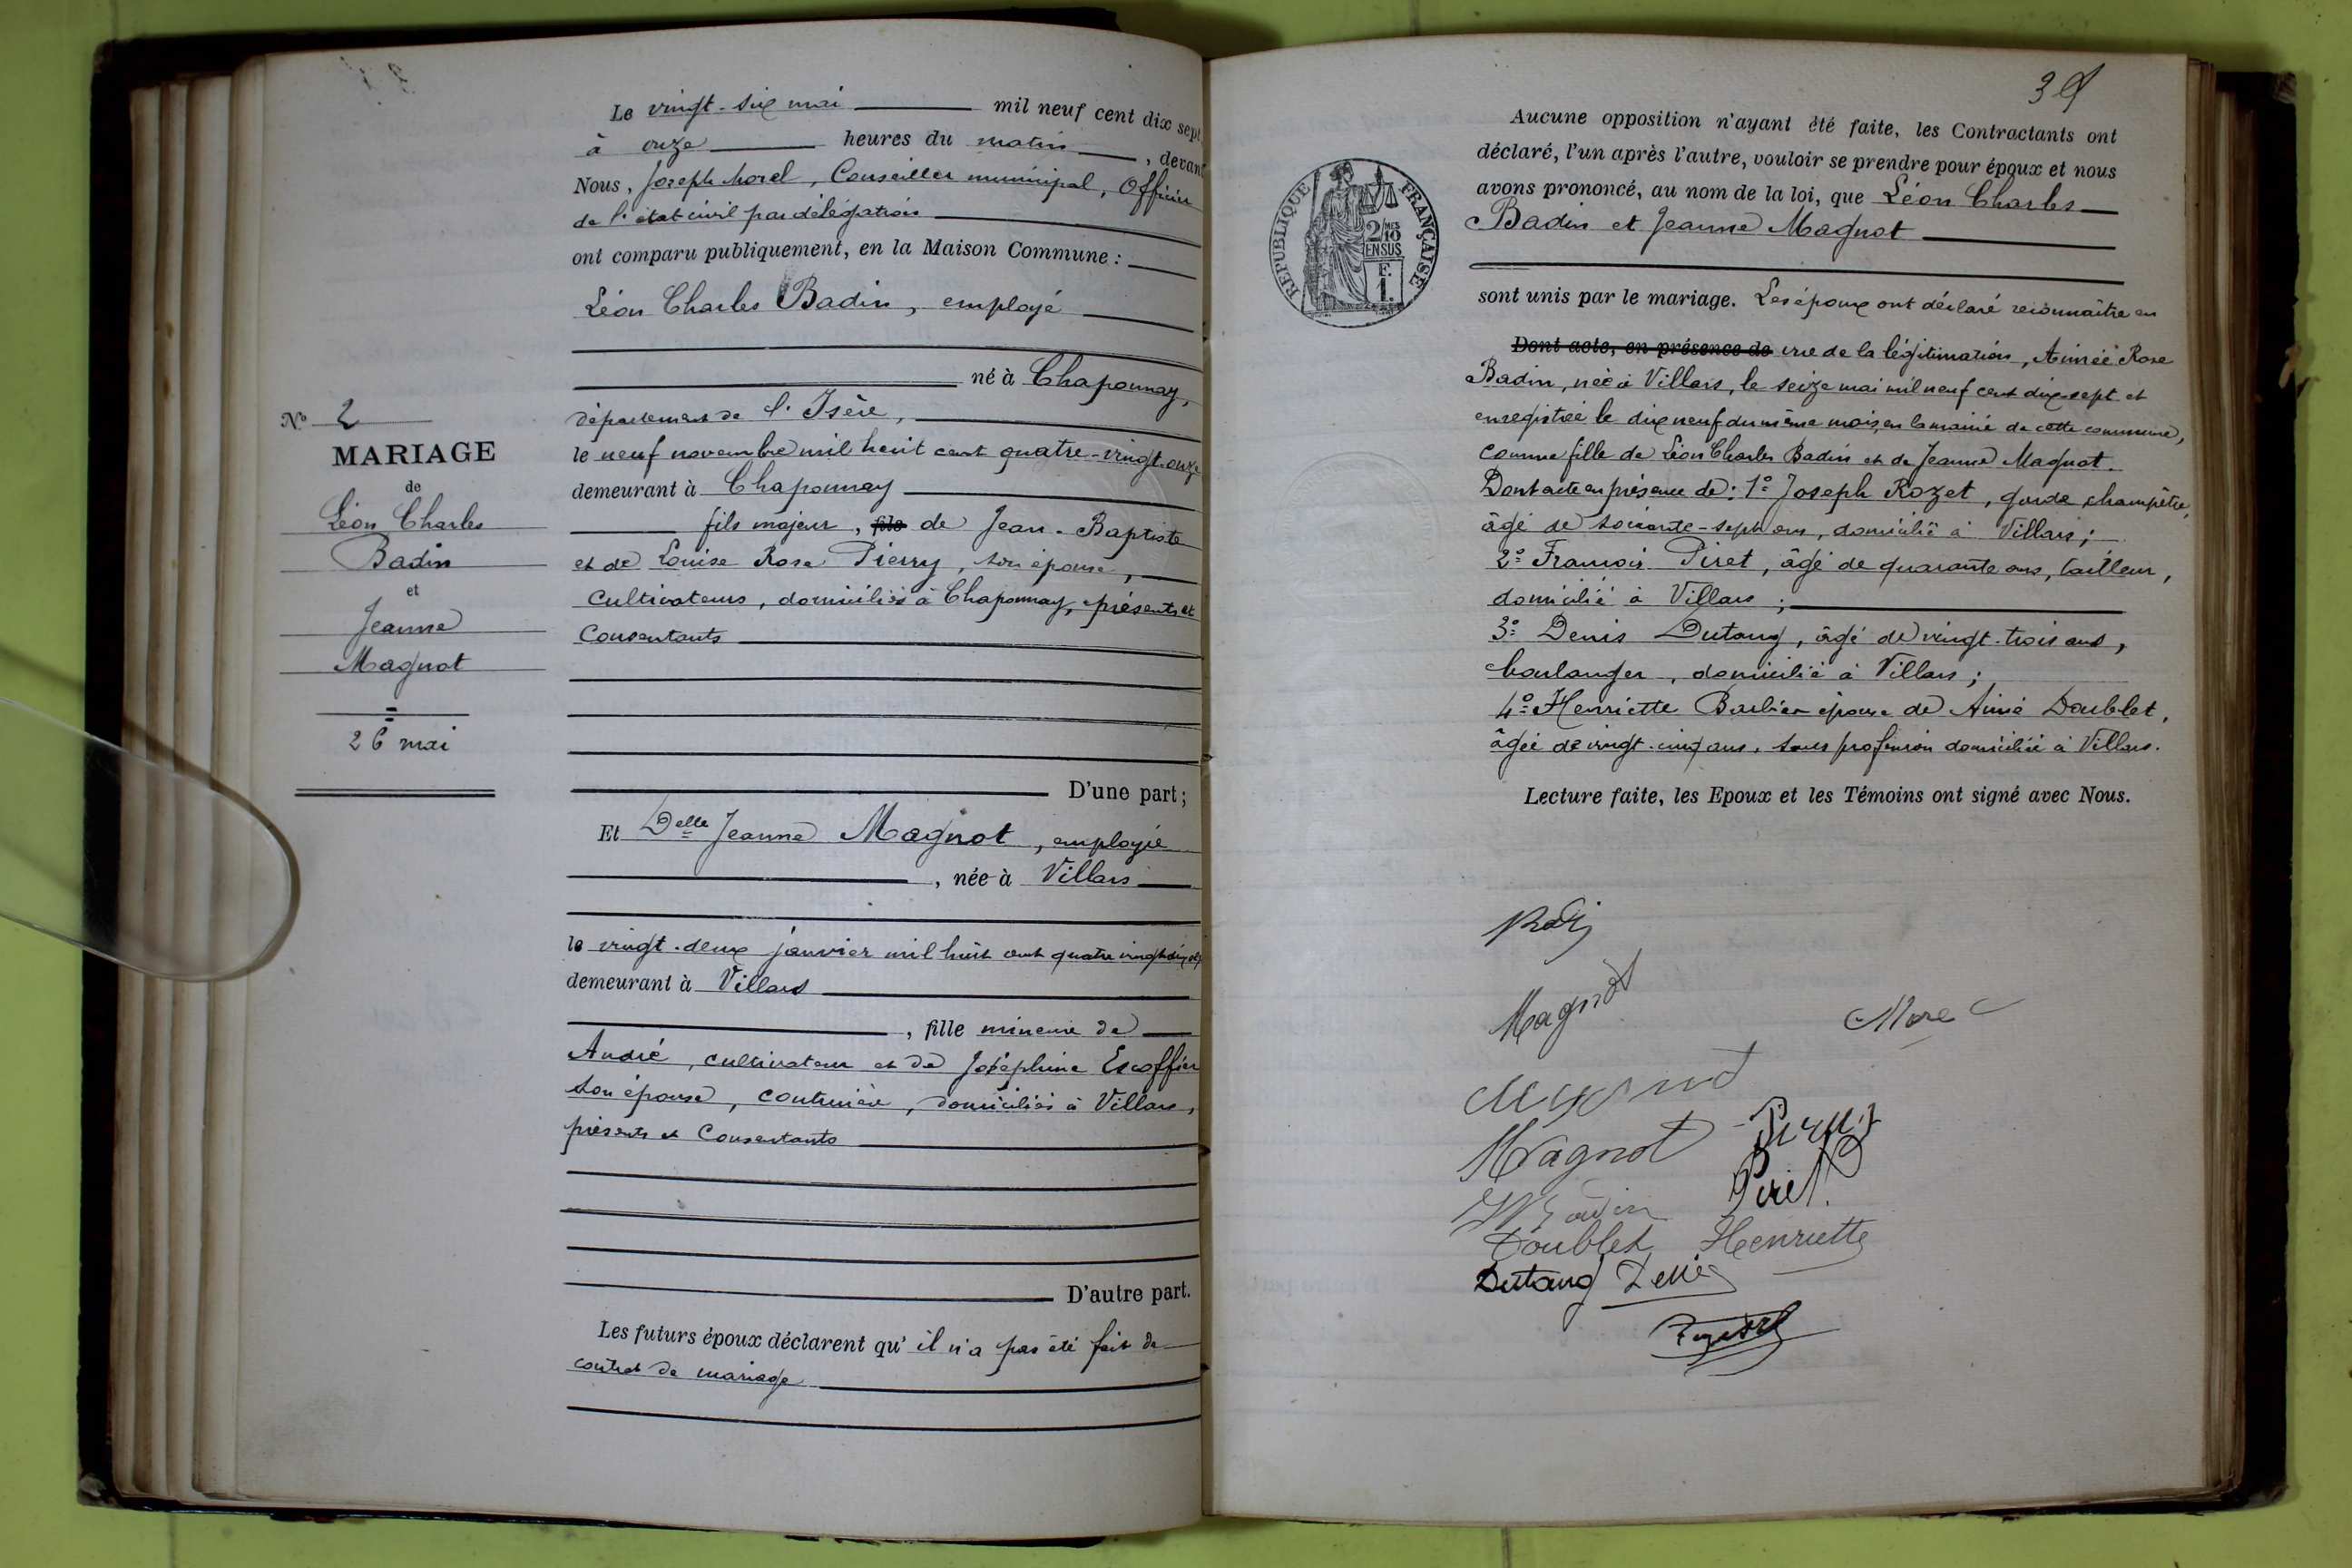 Le vingt-six mai mil neuf cent dix sept
à onze heures du matin, devant
Nous, Joseph Morel, Conseiller municipal, Officier
de l'état civil par délégation
ont comparu publiquement, en la Maison Commune :
Léon Charles Badin, employé
né à Chaponnay,
département de l'Isère,
le neuf novembre mil huit cent quatre-vingt-onze
demeurant à Chaponnay
fils majeur, fils de Jean-Baptiste
et de Louise Rose Pierry, son épouse,
cultivateurs, domiciliés à Chaponnay, présents et
consentants
D'une part ;
Nº 2
MARIAGE
de
Léon Charles
Badin
et
Jeanne
Magnot
26 mai
Et Delle Jeanne Magnot, employée
, née à Villars
le vingt-deux janvier mil huit cent quatre vingt dix
demeurant à Villars
, fille mineure de
André, cultivateur et de Joséphine Escoffier
son épouse, couturière, domiciliés à Villars,
présents et consentants
D'autre part.
Les futurs époux déclarent qu'il n'a pas été fait de
contrat de mariage
Aucune opposition n'ayant été faite, les Contractants ont
déclaré, l'un après l'autre, vouloir se prendre pour époux et nous
avons prononcé, au nom de la loi, que Léon Charles
Badin et Jeanne Magnot
REPUBLIQUE FRANÇAISE
2/10 MES
EN SUS
F.
1.
sont unis par le mariage. Les époux ont déclaré reconnaître en
Dont acte, en présence de vue de la légitimation, Aimée Rose
Badin, née à Villars, le seize mai mil neuf cent dix-sept et
enregistrée le dix neuf du même mois, en la mairie de cette commune,
comme fille de Léon Charles Badin et de Jeanne Magnot.
Dont acte en présence de : 1º Joseph Rozet, garde champêtre,
âgé de soixante-sept ans, domicilié à Villars ;
2º François Piret, âgé de quarante ans, tailleur,
domicilié à Villars ;
3º Denis Dutang, âgé de vingt-trois ans,
boulanger, domicilié à Villars ;
4º Henriette Barbier épouse de Aimé Doublet,
âgée de vingt-cinq ans, sans profession domiciliée à Villars.
Lecture faite, les Epoux et les Témoins ont signé avec Nous.
Badin
Magnot
Morel
Magnot
Piret
Badin
Doublet Henriette
Dutang Denis